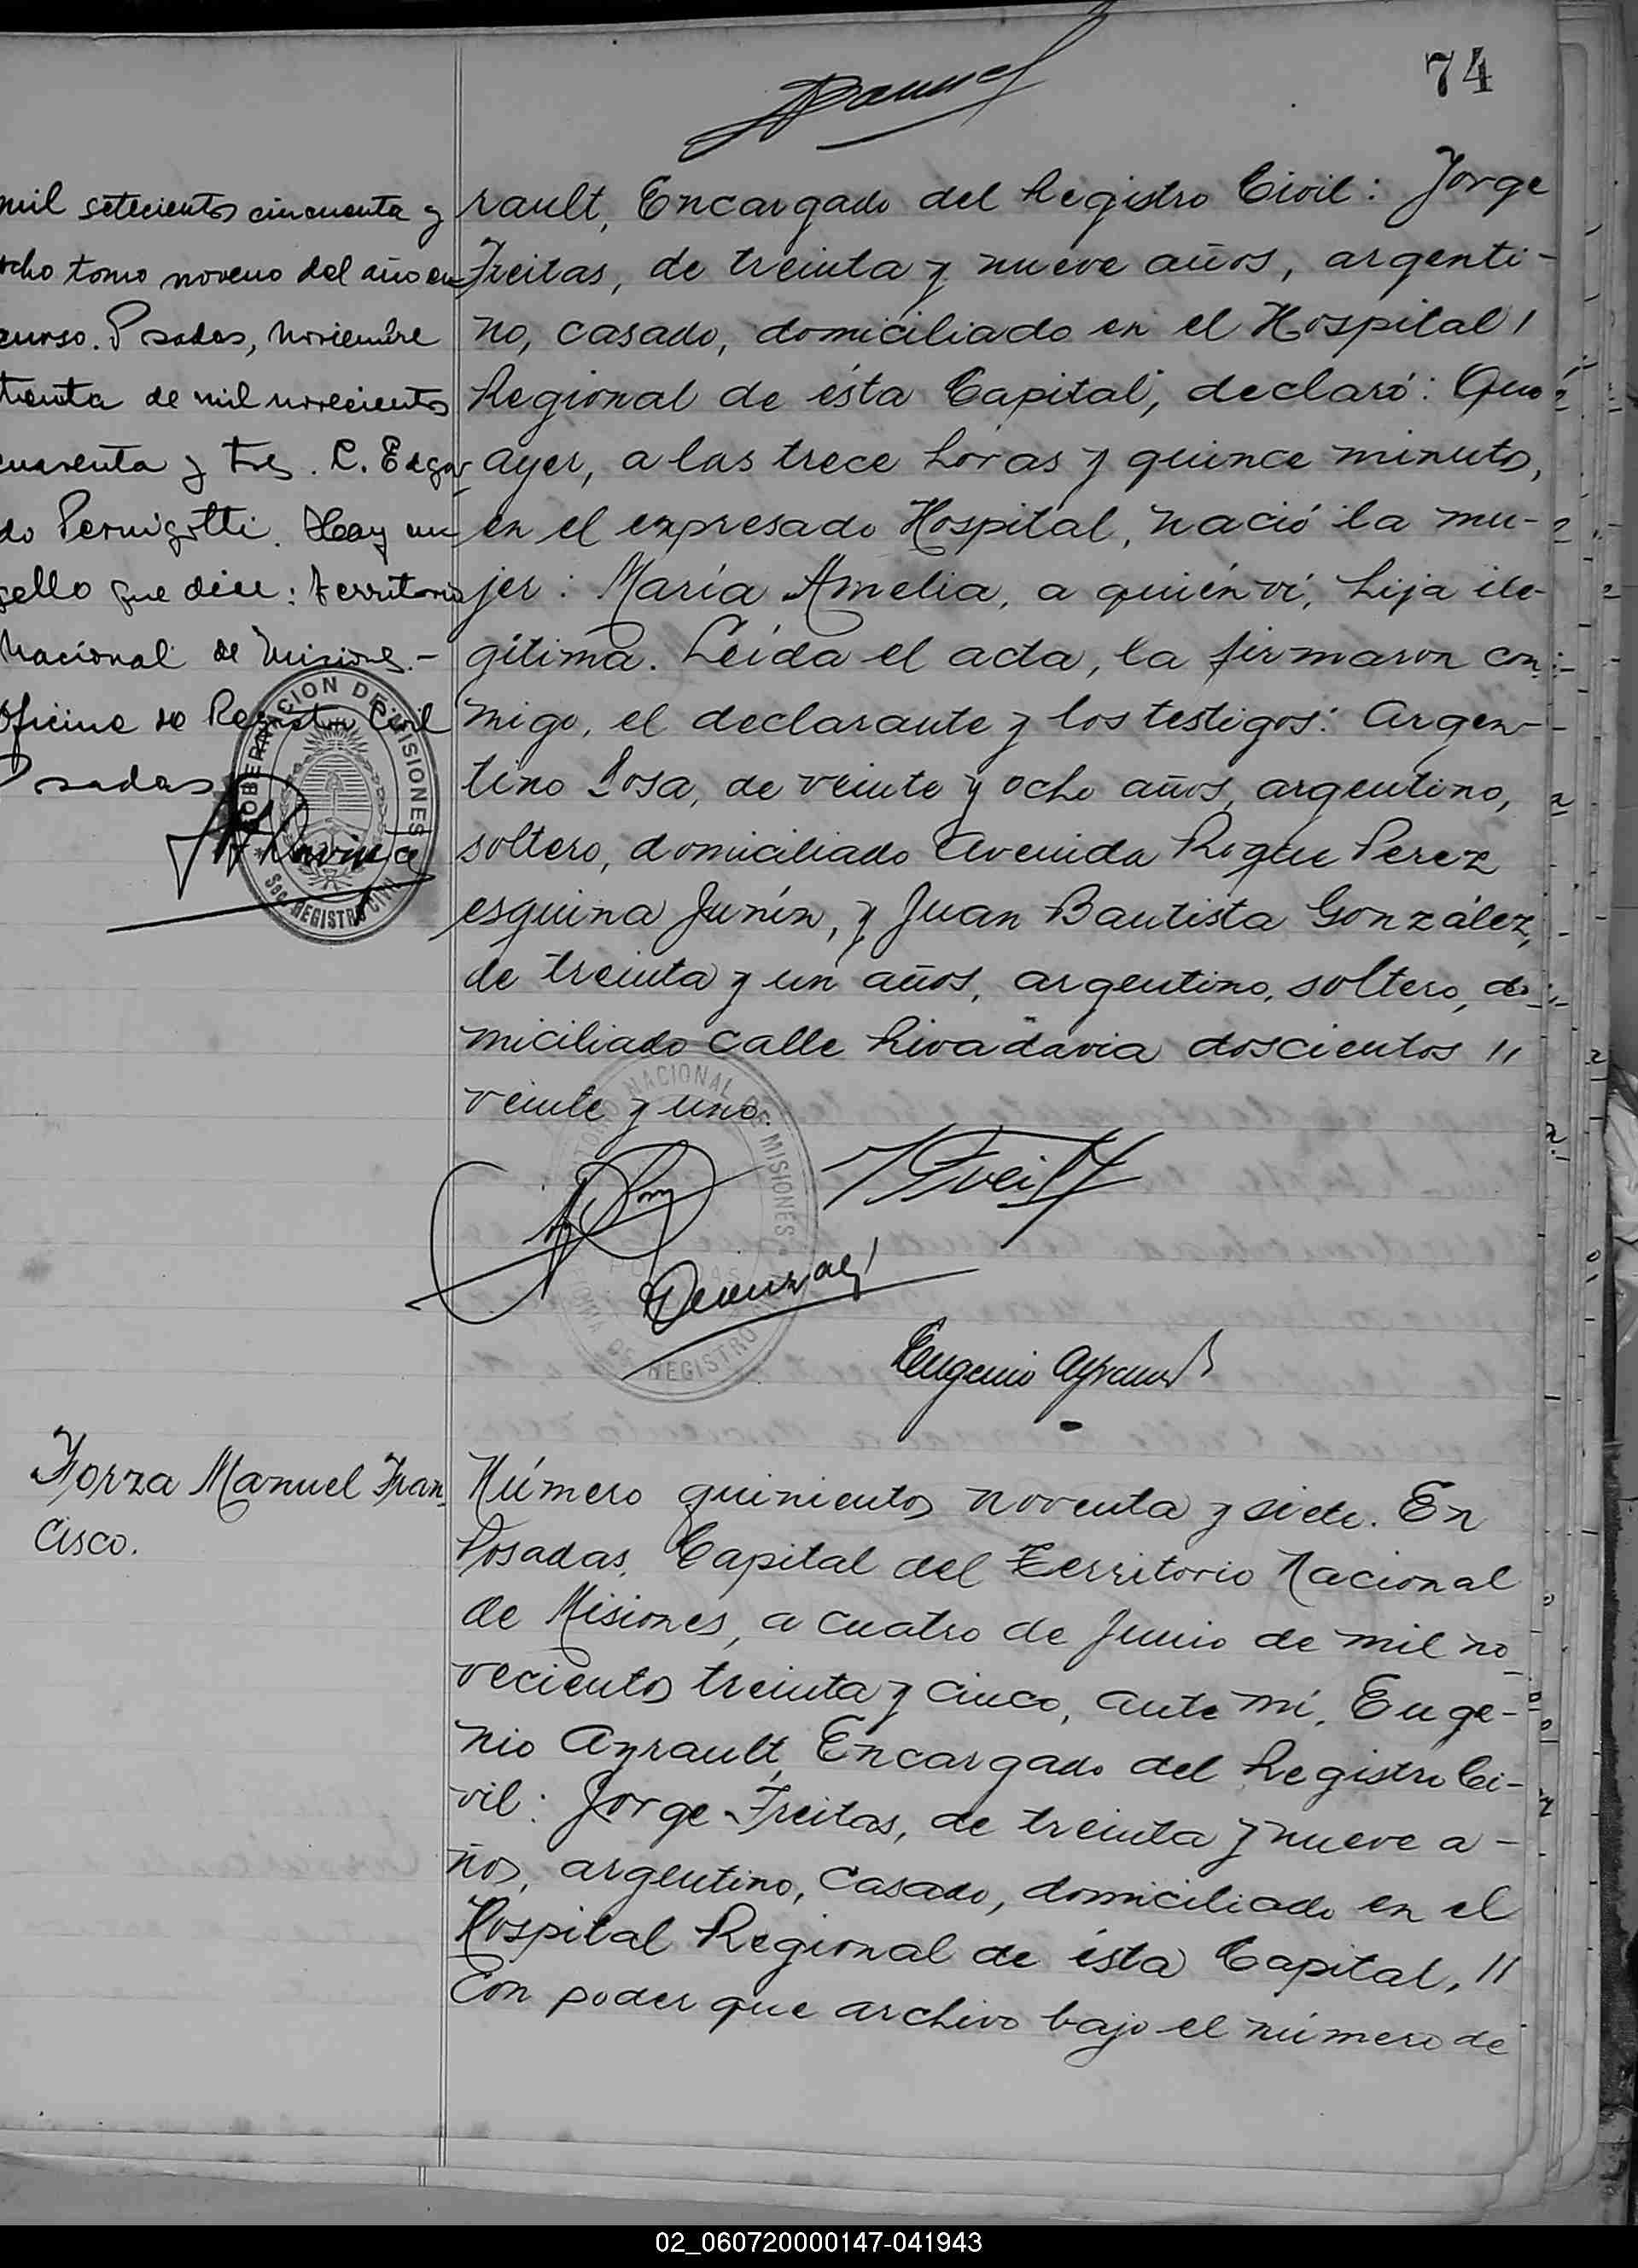 74
mil setecientos cincuenta y
ocho tomo noveno del año en
curso. Posadas, Noviembre
treinta de mil novecientos
cuarenta y tres. C. Edgar
do Pernigotti. Hay un
sello que dice: Territorio
Nacional de Misiones.-
Oficina de Registro Civil
Posadas
GOBERNACION DE MISIONES
Sec. REGISTRO CIVIL
rault, Encargado del Registro Civil: Jorge
Freitas, de treinta y nueve años, argenti-
no, casado, domiciliado en el Hospital /
Regional de ésta Capital, declaró: Que
ayer, a las trece horas y quince minutos,
en el expresado Hospital, nació la mu-
jer: María Amelia, a quién ví, hija ile-
gítima. Leída el acta, la firmaron con-
migo, el declarante y los testigos: Argen-
tino Sosa, de veinte y ocho años, argentino,
soltero, domiciliado Avenida Roque Perez
esquina Junín, y Juan Bautista González,
de treinta y un años, argentino, soltero, do-
miciliado calle Rivadavia doscientos //
veinte y uno.
NACIONAL DE MISIONES
REGISTRO
JFreitas
Gonzalez
Eugenio Ayrault
Forza Manuel Fran-
cisco.
Número quinientos noventa y siete. En
Posadas, Capital del Territorio Nacional
de Misiones, a cuatro de Junio de mil no-
vecientos treinta y cinco, ante mí, Euge-
nio Ayrault, Encargado del Registro Ci-
vil: Jorge Freitas, de treinta y nueve a-
ños, argentino, casado, domiciliado en el
Hospital Regional de ésta Capital, //
Con poder que archivo bajo el número de
02_060720000147-041943